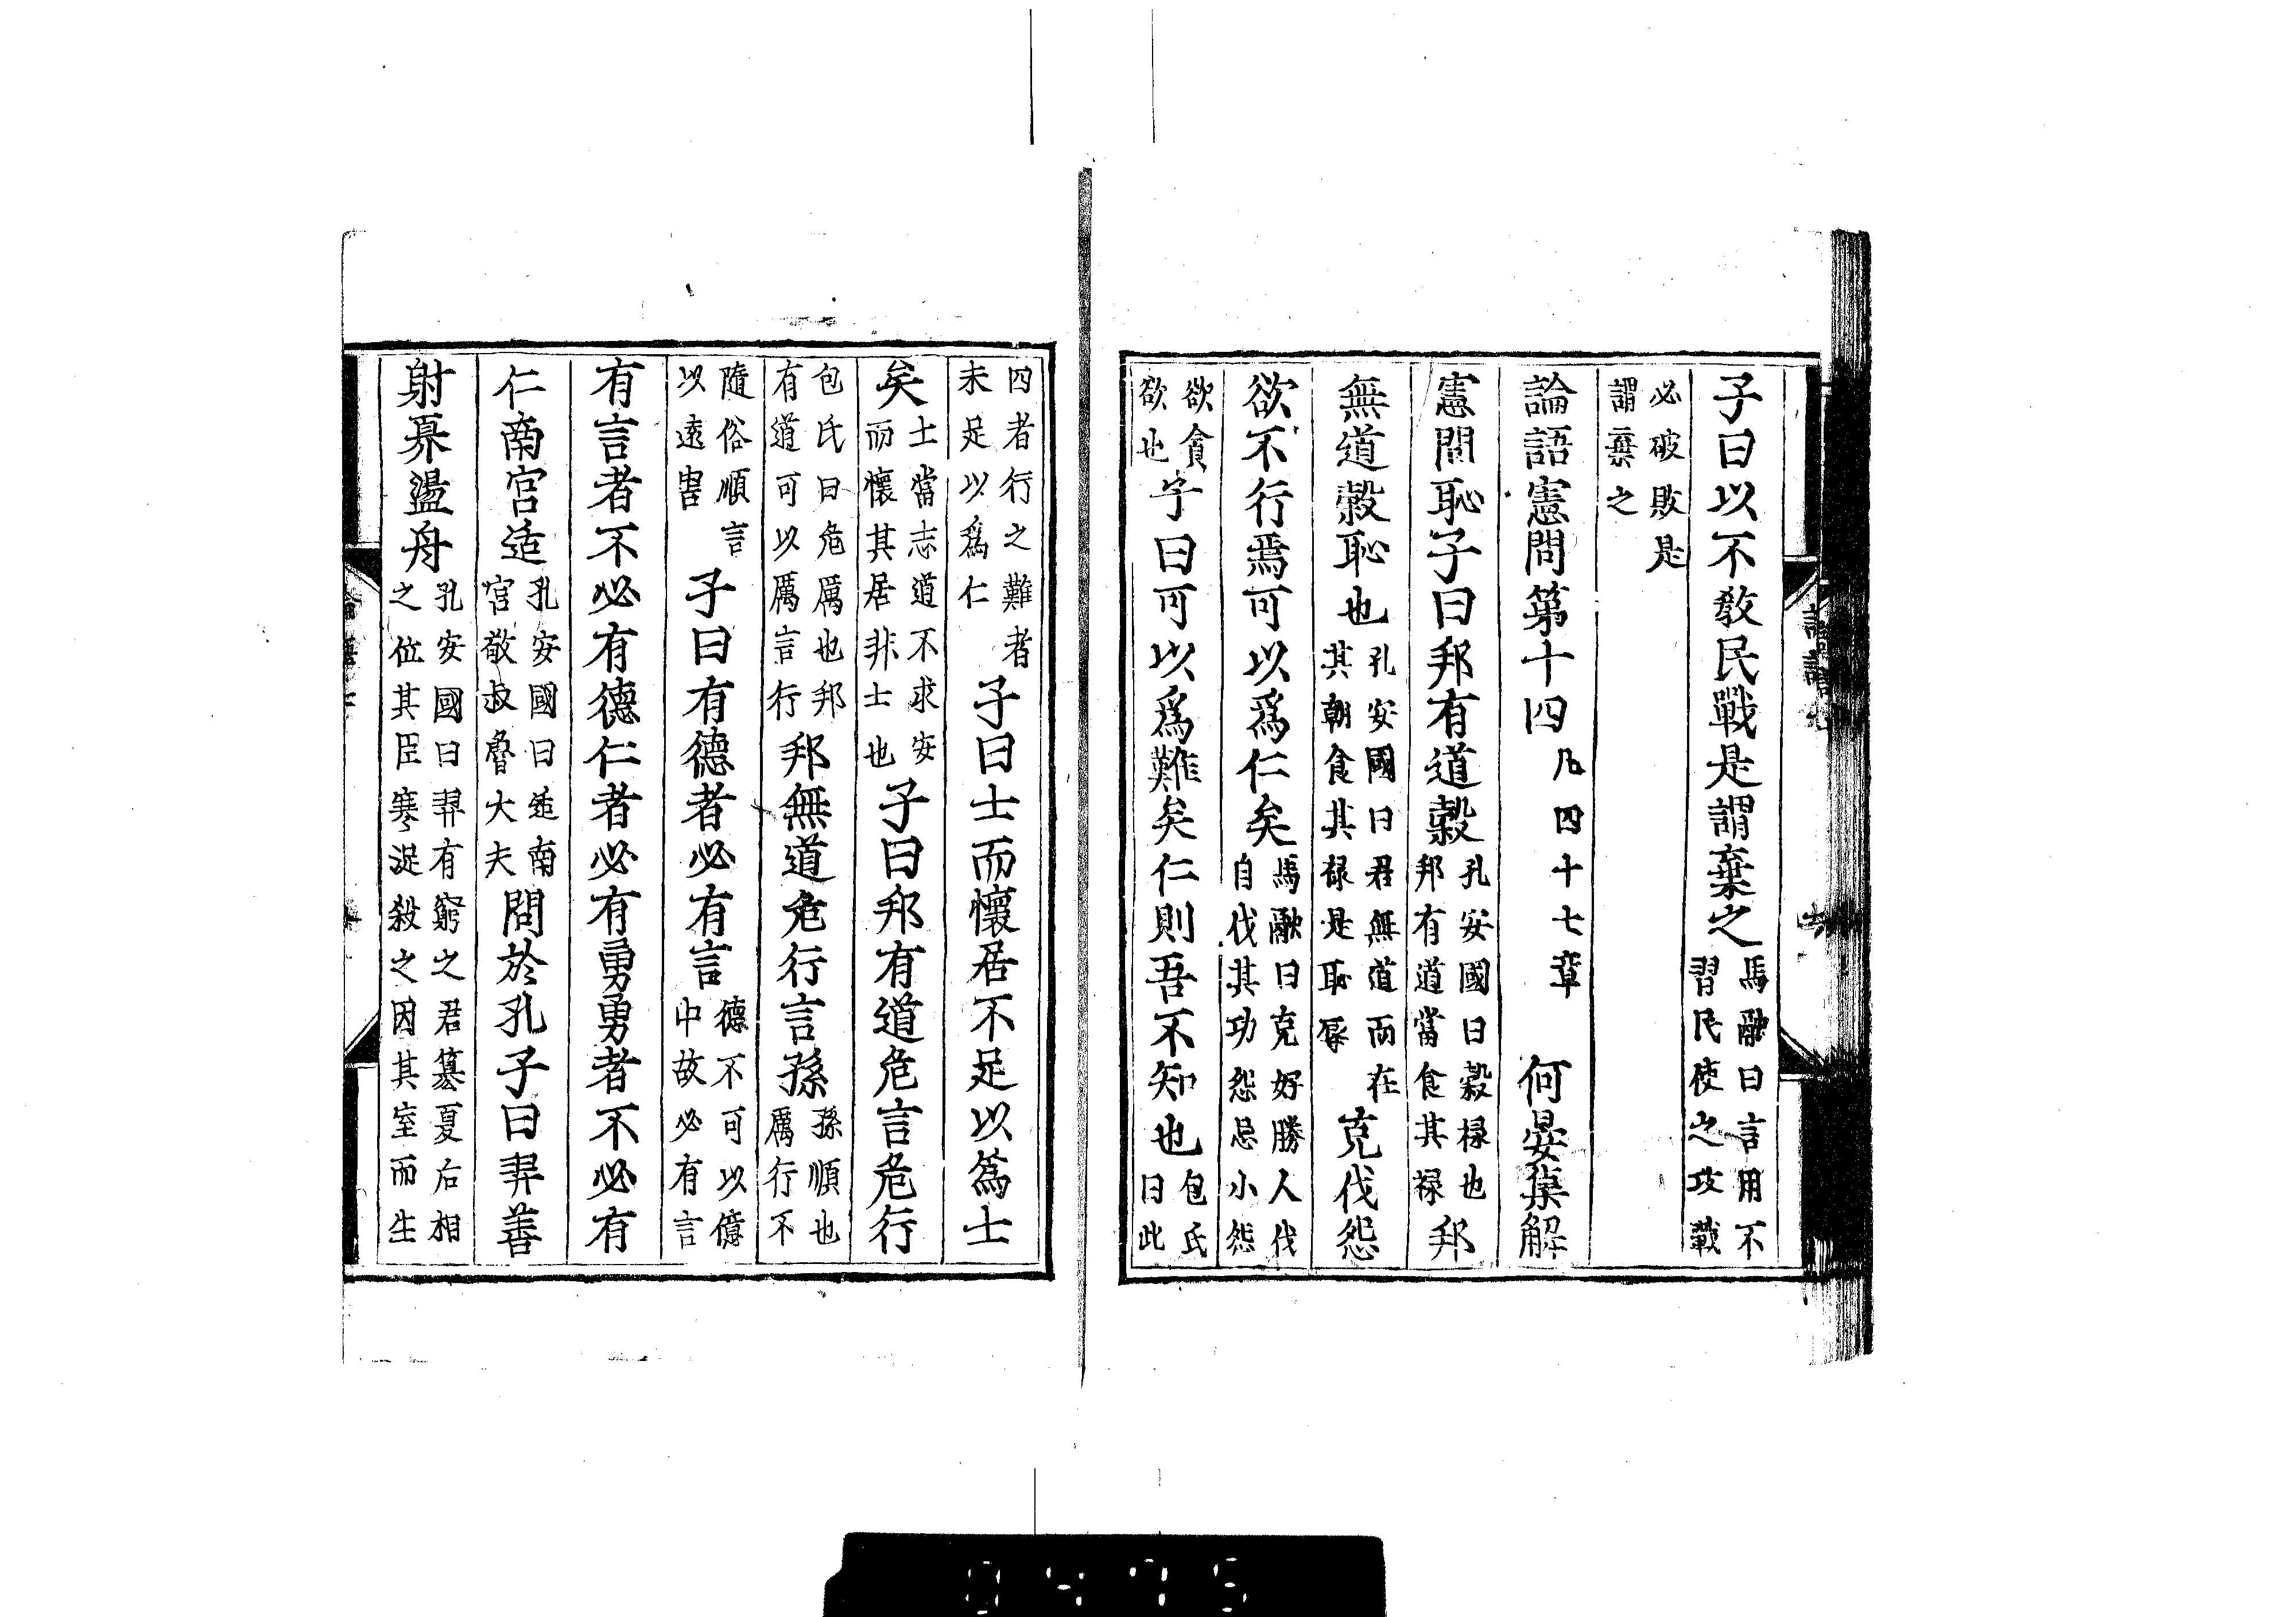 子曰以不敎民戰是謂棄之馬融曰言用不習民使之攻戰
必破敗是謂棄之
論語憲問第十四 凡四十七章 何晏集解
憲問恥子曰邦有道穀孔安國曰穀祿也邦有道當食其禄邦
無道穀恥也孔安國曰君無道而在其朝食其禄是恥辱克伐怨
欲不行焉可以爲仁矣馬融曰克好勝人伐自伐其功怨忌小怨
欲貪欲也子曰可以爲難矣仁則吾不知也包氏曰此
四者行之難者未足以爲仁子曰士而懷居不足以爲士
矣士當志道不求安而懷其居非士也子曰邦有道危言危行
包氏曰危厲也邦有道可以厲言行邦無道危行言孫孫順也厲行不
隨俗順言以遠害子曰有德者必有言德不可以億中故必有言
有言者不必有德仁者必有勇勇者不必有
仁南宮适孔安國曰适南宮敬叔魯大夫問於孔子曰羿善
射奡盪舟孔安國曰羿有窮之君簒夏后相之位其臣寒浞殺之因其室而生
0475